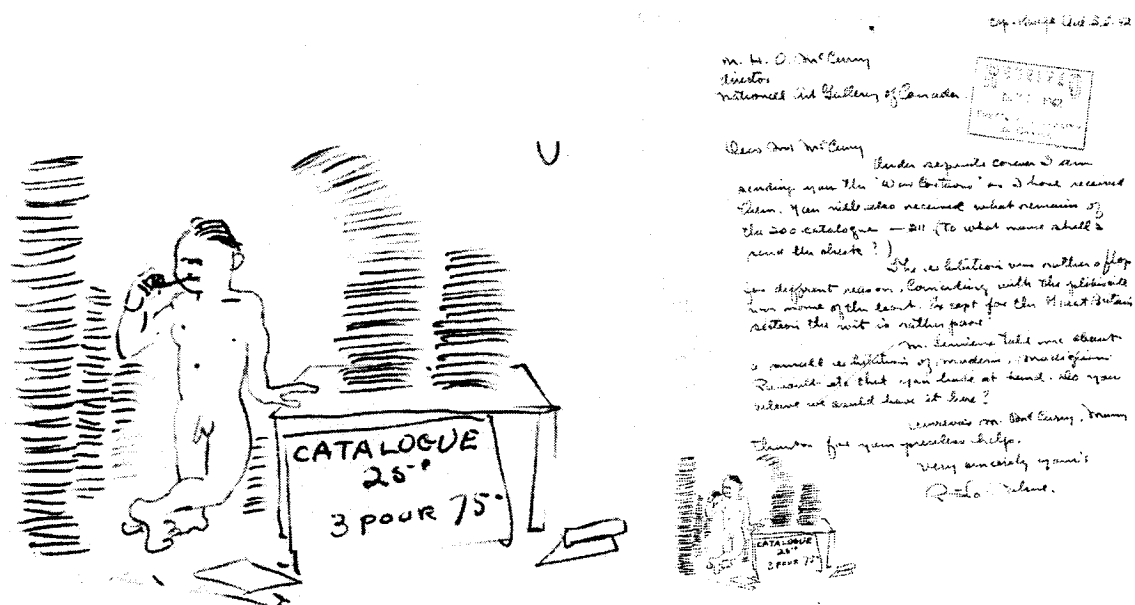 CATALOGUE
25¢
3 POUR 75¢
M. H. O. McCurry
director
National Art Gallery of Canada.
Dear Mr McCurry
Under separate cover I am
sending you the "War Cartoons" as I have received
them. You will also received what remains of
the 200 catalogue — 211 (to what name shall I
send the check?)
The exhibition was rather a flop
for different reason. Coinciding with the plebiscite
was none of the least. Except for the Great Britain
section the wit is rather poor
M. told me about
a small exhibition of modern, Modigliani
Renault etc that you have at hand. Do you
believe we could have it here?
M. McCurry, many
thanks for your precious help.
Very sincerely your's
CATALOGUE
25¢
3 POUR 75¢